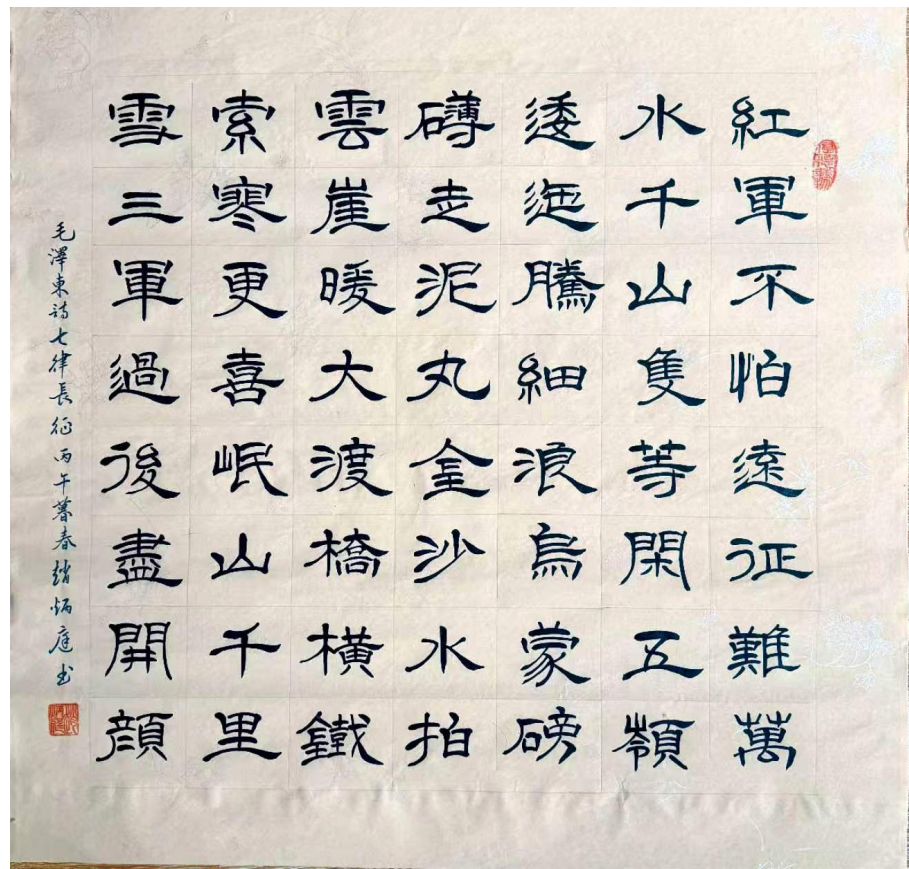 紅軍不怕遠征難萬
水千山隻等閑五嶺
逶迤騰細浪烏蒙磅
礴走泥丸金沙水拍
雲崖暖大渡橋橫鐵
索寒更喜岷山千里
雪三軍過後盡開顏
毛澤東詩七律長征丙午暮春趙炳庭书